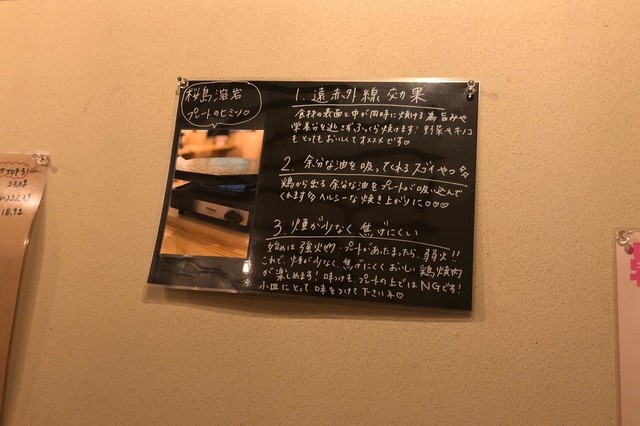 桜島溶岩
プレートのヒミツ♡
1. 遠赤外線効果
食材の表面と中が同時に焼ける為旨みや
栄養分を逃さずふっくら焼けます！野菜やキノコ
もとってもおいしくてオススメです♡
2. 余分な油を吸ってくれるスゴイやつ
鶏から出る余分な油をプレートが吸い込んで
くれます ヘルシーな焼き上がりに♡♡♡
3. 煙が少なく焦げにくい
始めは強火で プレートがあたたまったら、弱火!!
これで、煙が少なく、焦げにくくおいしい鶏焼肉
が楽しめます！味つけも、プレートの上ではNGです！
小皿にとって味をつけて下さいネ♡
TOP3!